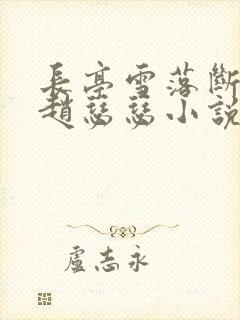 長亭雪落斷
趙慈慈小說
盧志永